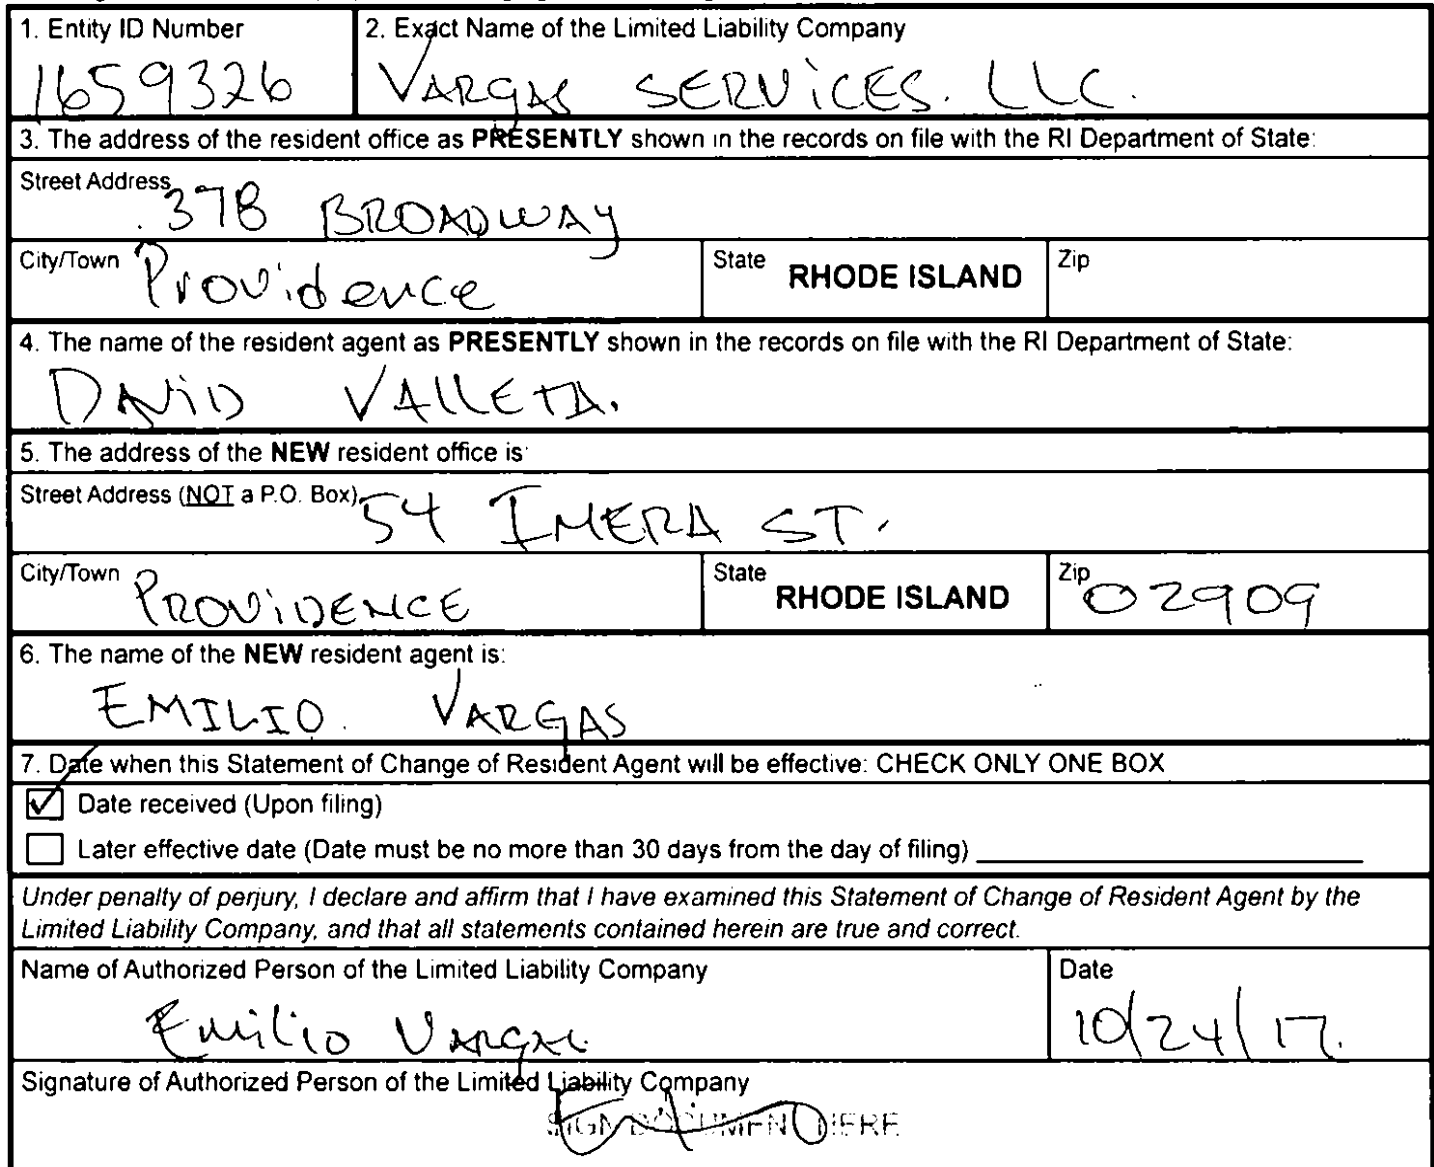 1. Entity ID Number
1659326
2. Exact Name of the Limited Liability Company
VARGAS SERVICES. LLC.
3. The address of the resident office as PRESENTLY shown in the records on file with the RI Department of State:
Street Address
378 BROADWAY
City/Town Providence
State RHODE ISLAND
Zip
4. The name of the resident agent as PRESENTLY shown in the records on file with the RI Department of State:
DAVID VALLETA.
5. The address of the NEW resident office is:
Street Address (NOT a P.O. Box) 54 IMERA ST.
City/Town PROVIDENCE
State RHODE ISLAND
Zip 02909
6. The name of the NEW resident agent is:
EMILIO. VARGAS
7. Date when this Statement of Change of Resident Agent will be effective: CHECK ONLY ONE BOX
Date received (Upon filing)
Later effective date (Date must be no more than 30 days from the day of filing)
Under penalty of perjury, I declare and affirm that I have examined this Statement of Change of Resident Agent by the
Limited Liability Company, and that all statements contained herein are true and correct.
Name of Authorized Person of the Limited Liability Company
Emilio VARGAS
Date
10/24/17.
Signature of Authorized Person of the Limited Liability Company
SIGN DOCUMENT HERE